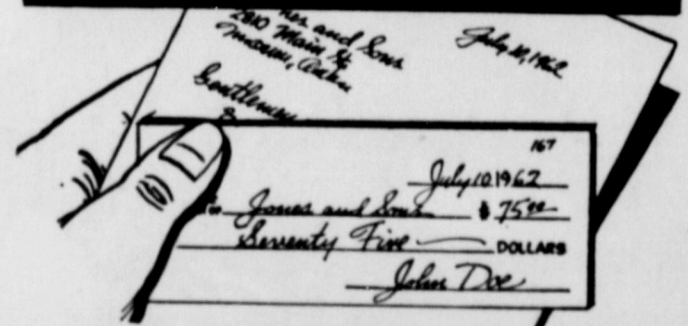 nes and Sons
2810 Main St
July 10, 1962
Gentlemen
167
July 10 1962
Jones and Sons $ 75 00
Seventy Five DOLLARS
John Doe